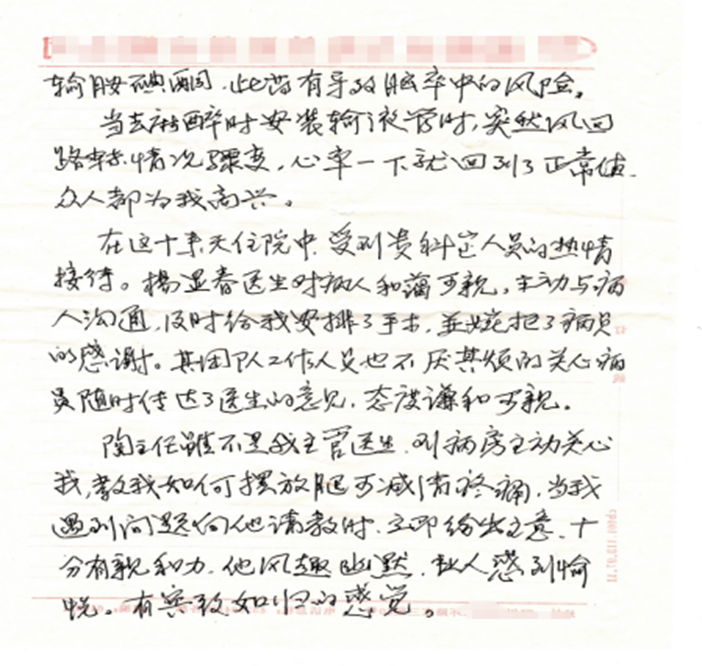 输胺碘酮,此药有导致脑卒中的风险。
当去麻醉时安装输液管时,突然风回
路转情况骤变,心率一下就回到了正常值.
众人都为我高兴。
在这十来天住院中,受到贵科室人员的热情
接待。杨显春医生对病人和蔼可亲,主动与病
人沟通,及时给我安排了手术,並婉拒了病员
的感谢。其团队工作人员也不厌其烦的关心病
员随时传达了医生的意见,态度谦和可亲。
陶主任虽不是我主管医生,到病房主动关心
我,教我如何摆放腿可减轻疼痛,当我
遇到问题向他请教时,立即给出主意,十
分有亲和力,他风趣幽默,让人感到愉
悦。有宾至如归的感觉。